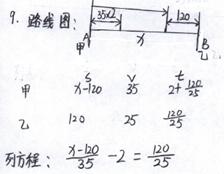 9. 路线图:
35×2 120
A x B
甲 乙
S V t
甲 x-120 35 2+120/25
乙 120 25 120/25
列方程: (x-120)/35 -2 = 120/25